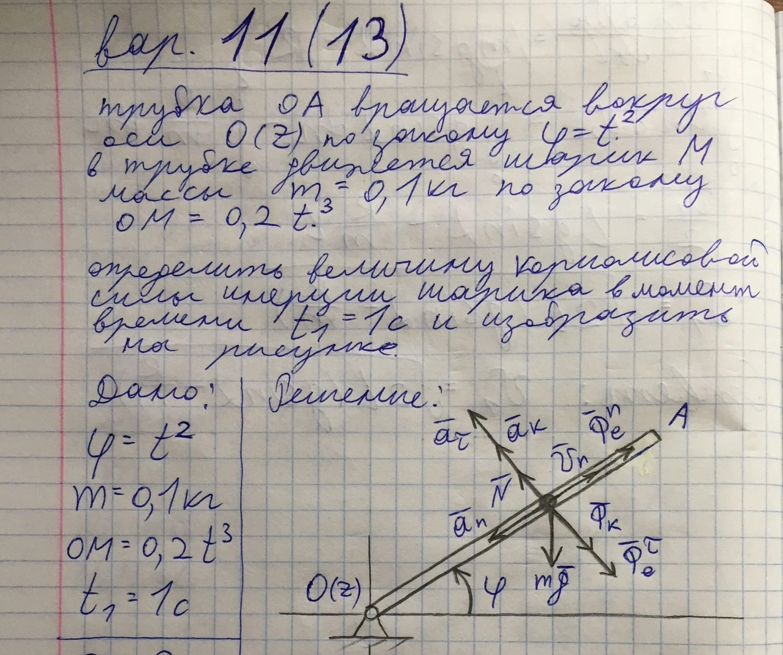 вар. 11 (13)
трубка OA вращается вокруг
оси O(z) по закону φ = t²
в трубке движется шарик M
массы m = 0,1 кг по закону
OM = 0,2 t³
определить величину кориолисовой
силы инерции шарика в момент
времени t₁ = 1с и изобразить
на рисунке.
Дано:
φ = t²
m = 0,1 кг
OM = 0,2 t³
t₁ = 1с
Решение:
A
āτ
āк
Φ̄eⁿ
ῡn
N̄
ān
Φ̄к
Φ̄eτ
mḡ
O(z)
φ